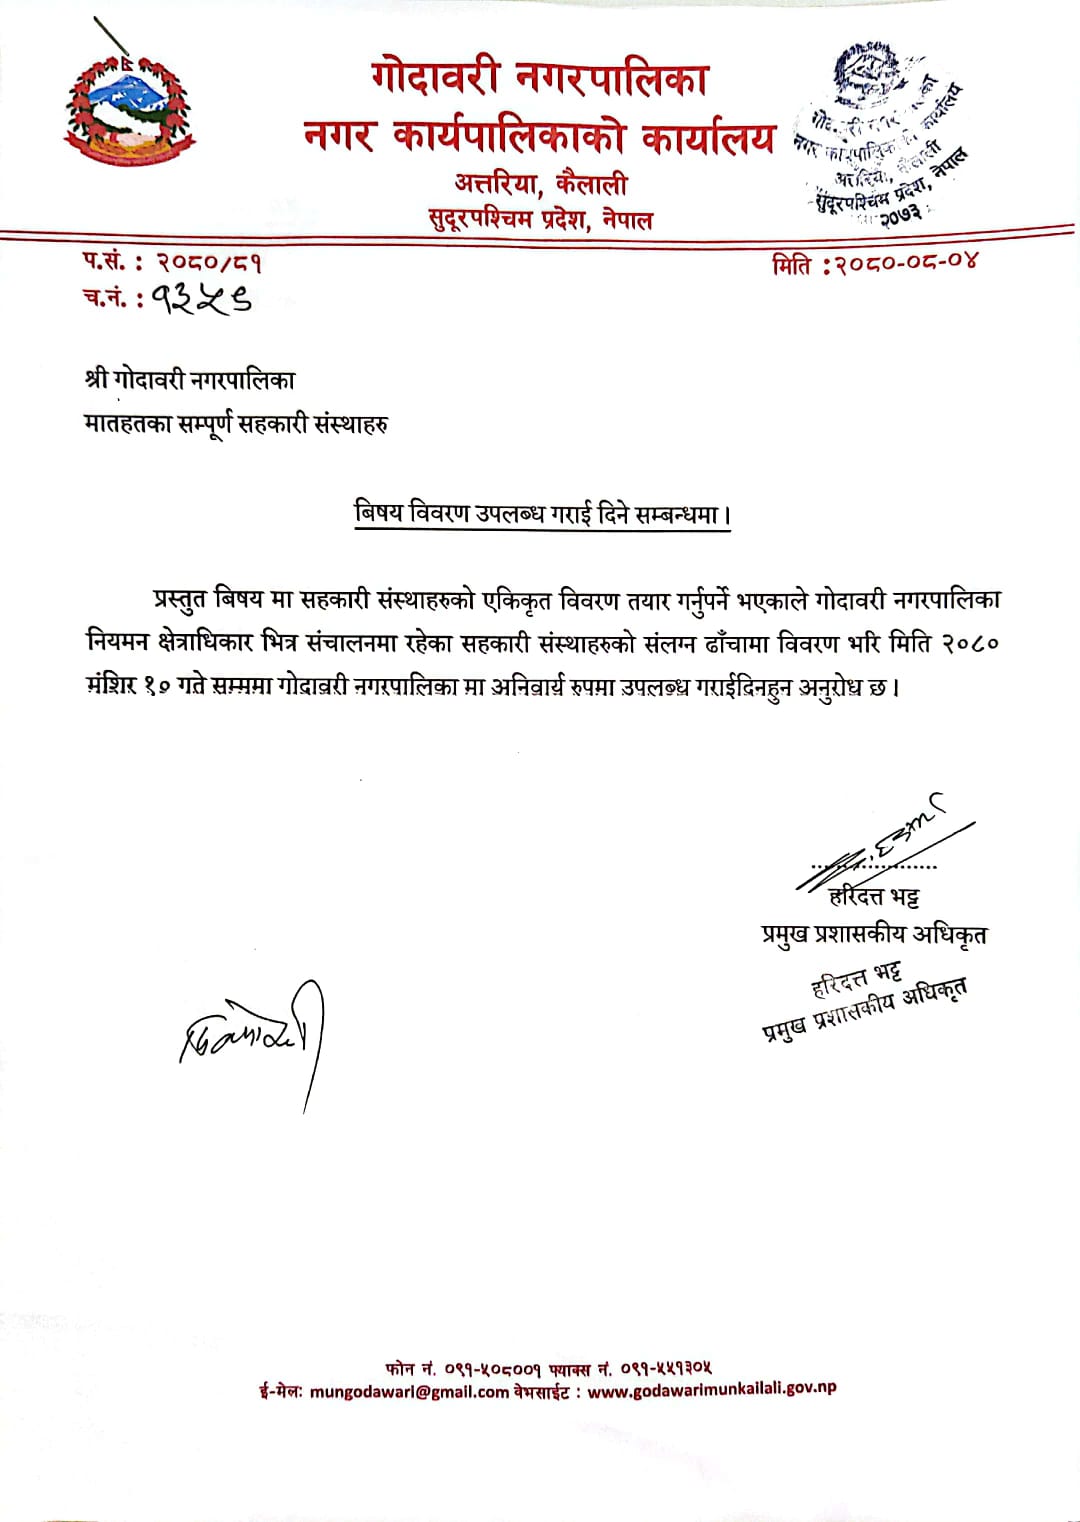 गोदावरी नगरपालिका
नगर कार्यपालिकाको कार्यालय
अत्तरिया, कैलाली
सुदूरपश्चिम प्रदेश, नेपाल
नगर कार्यपालिकाको कार्यालय
अत्तरिया, कैलाली
सुदूरपश्चिम प्रदेश, नेपाल
२०७३
प.सं. : २०८०/८१
मिति : २०८०-०८-०४
च.नं. : १३५९
श्री गोदावरी नगरपालिका
मातहतका सम्पूर्ण सहकारी संस्थाहरु
बिषय विवरण उपलब्ध गराई दिने सम्बन्धमा ।
प्रस्तुत बिषय मा सहकारी संस्थाहरुको एकिकृत विवरण तयार गर्नुपर्ने भएकाले गोदावरी नगरपालिका
नियमन क्षेत्राधिकार भित्र संचालनमा रहेका सहकारी संस्थाहरुको संलग्न ढाँचामा विवरण भरि मिति २०८०
मंशिर १० गते सम्ममा गोदावरी नगरपालिका मा अनिवार्य रुपमा उपलब्ध गराईदिनहुन अनुरोध छ ।
हरिदत्त भट्ट
प्रमुख प्रशासकीय अधिकृत
हरिदत्त भट्ट
प्रमुख प्रशासकीय अधिकृत
फोन नं. ०९१-५०८००१ फ्याक्स नं. ०९१-५५१३०५
ई-मेल: mungodawari@gmail.com वेभसाईट : www.godawarimunkailali.gov.np